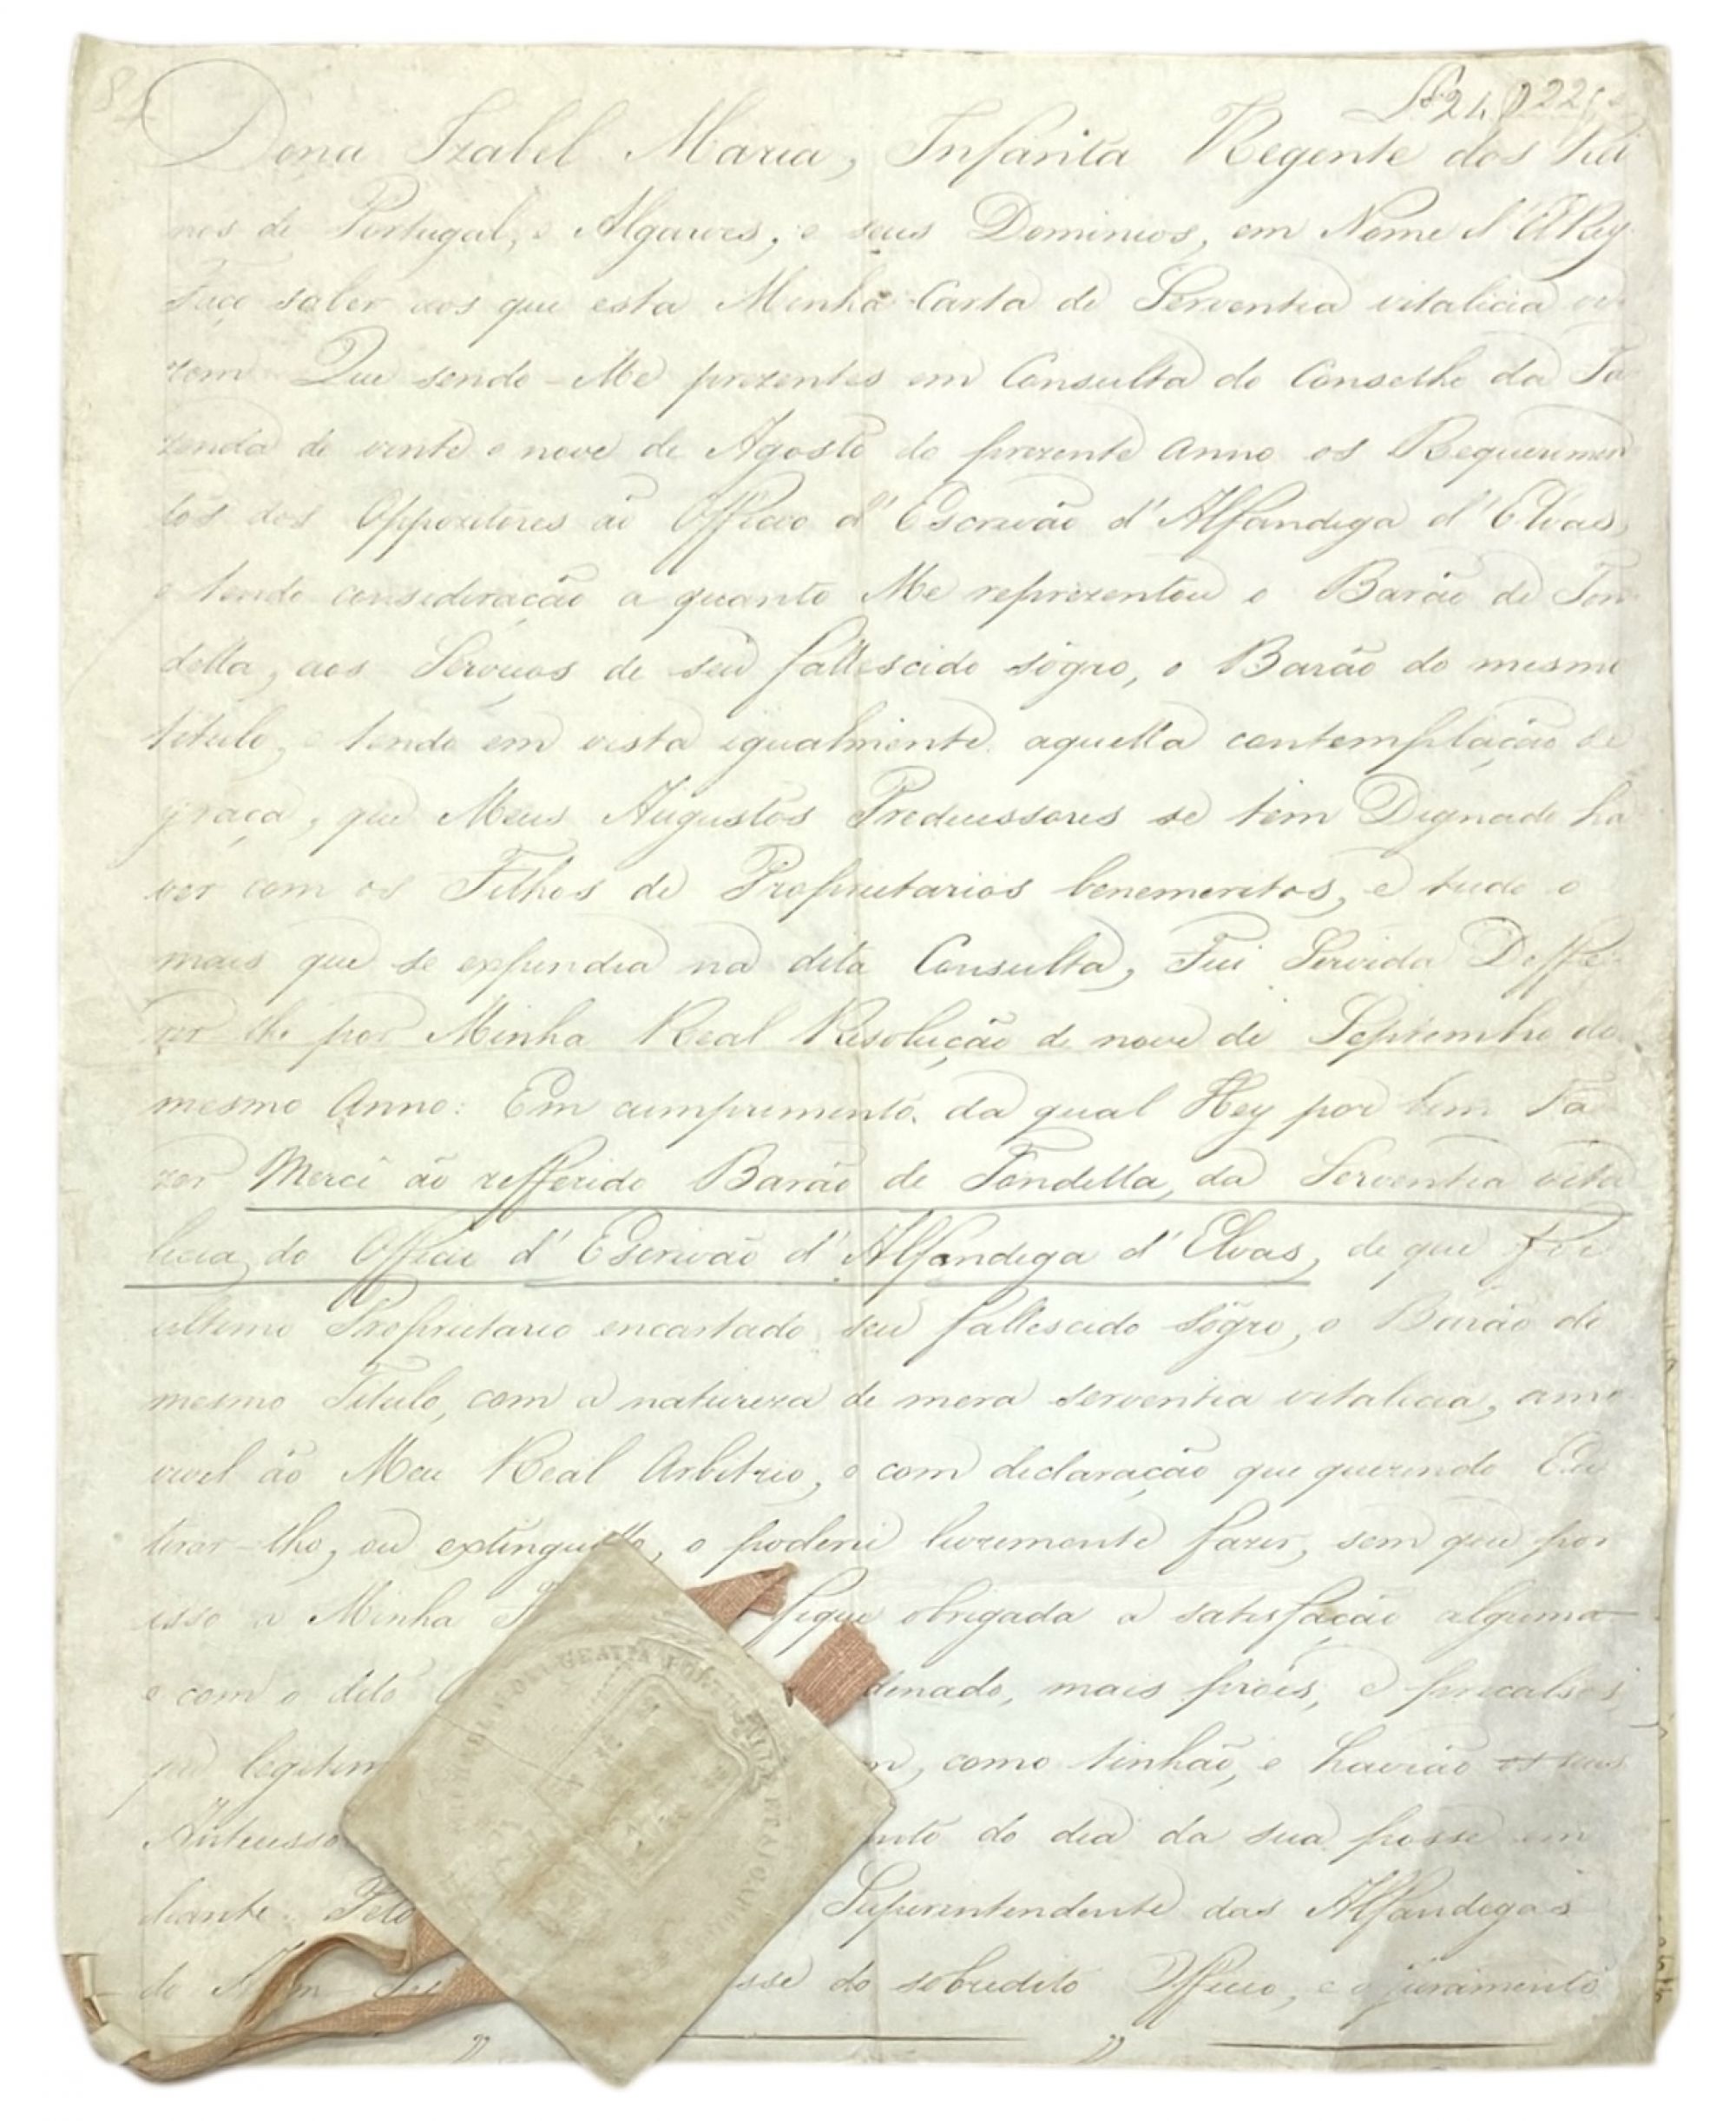 Dona Izabel Maria, Infanta Regente dos Rei
nos de Portugal, e Algarves, e seus Dominios, em Nome d'ElRey
Faço saber aos que esta Minha Carta de Serventia vitalicia vi
rem Que sendo-Me prezentes em Consulta do Conselho da Fa
zenda de vinte e nove de Agosto do prezente anno os Requerimen
tos dos Oppozitores ao Officio d'Escrivão d'Alfandega d'Elvas,
e tendo consideração a quanto Me reprezentou o Barão de Ton
della, aos Serviços de seu fallescido sogro, o Barão do mesmo
titulo, e tendo em vista igualmente aquella contemplação de
graça, que Meus Augustos Predecessores se tem Dignado ha
ver com os Filhos de Proprietarios benemeritos, e tudo o
mais que se expendia na dita Consulta, Fui Servida Deffe
rir lhe por Minha Real Resolução de nove de Septembro do
mesmo Anno: Em cumprimento da qual Hey por bem Fa
zer Mercê ao refferido Barão de Tondella, da Serventia vita
licia do Officio d'Escrivão d'Alfandega d'Elvas, de que foi
ultimo Proprietario encartado seu fallescido sogro, o Barão do
mesmo Titulo, com a natureza de mera serventia vitalicia, amo
vivel ao Meu Real Arbitrio, e com declaração que querendo Eu
tirar-lho, ou extinguillo, o poderei livremente fazer, sem que por
isso a Minha fique obrigada a satisfação alguma
e com o dito denado, mais proes, e precalsos,
que legitim m, como tinhão, e havião os seus
Antecesso nto do dia da sua posse em
diante. Pelo Superintendente das Alfandegas
do sse do sobredito Officio, e o juramento